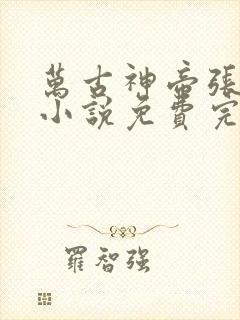 萬古神帝張
小說免費完
羅智強